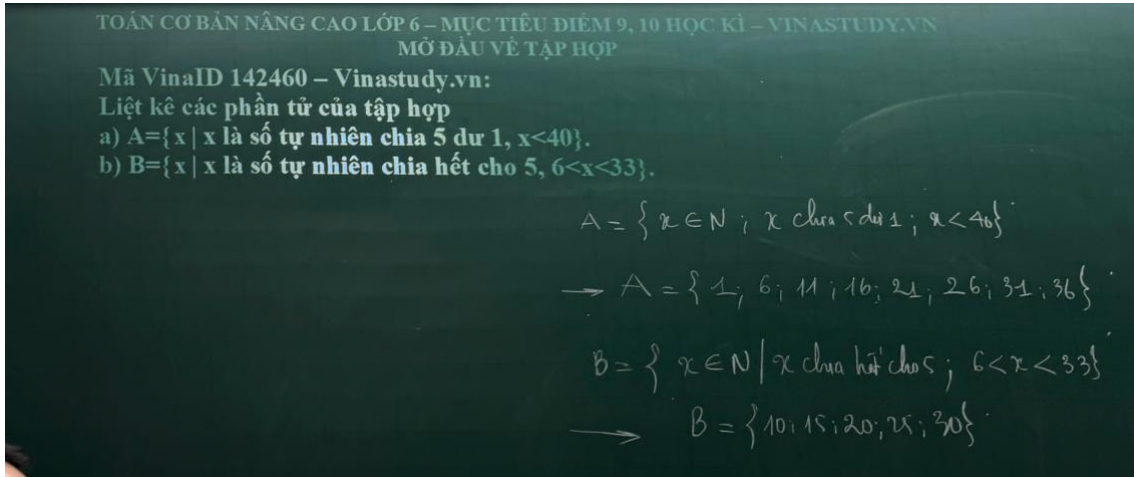 TOÁN CƠ BẢN NÂNG CAO LỚP 6 – MỤC TIÊU ĐIỂM 9, 10 HỌC KÌ – VINASTUDY.VN
MỞ ĐẦU VỀ TẬP HỢP
Mã VinaID 142460 – Vinastudy.vn:
Liệt kê các phần tử của tập hợp
a) A={x | x là số tự nhiên chia 5 dư 1, x<40}.
b) B={x | x là số tự nhiên chia hết cho 5, 6<x<33}.
A = { x ∈ N ; x chia 5 dư 1 ; x < 40}
→ A = { 1; 6; 11; 16; 21; 26; 31; 36}
B = { x ∈ N | x chia hết cho 5 ; 6 < x < 33}
→ B = {10; 15; 20; 25; 30}